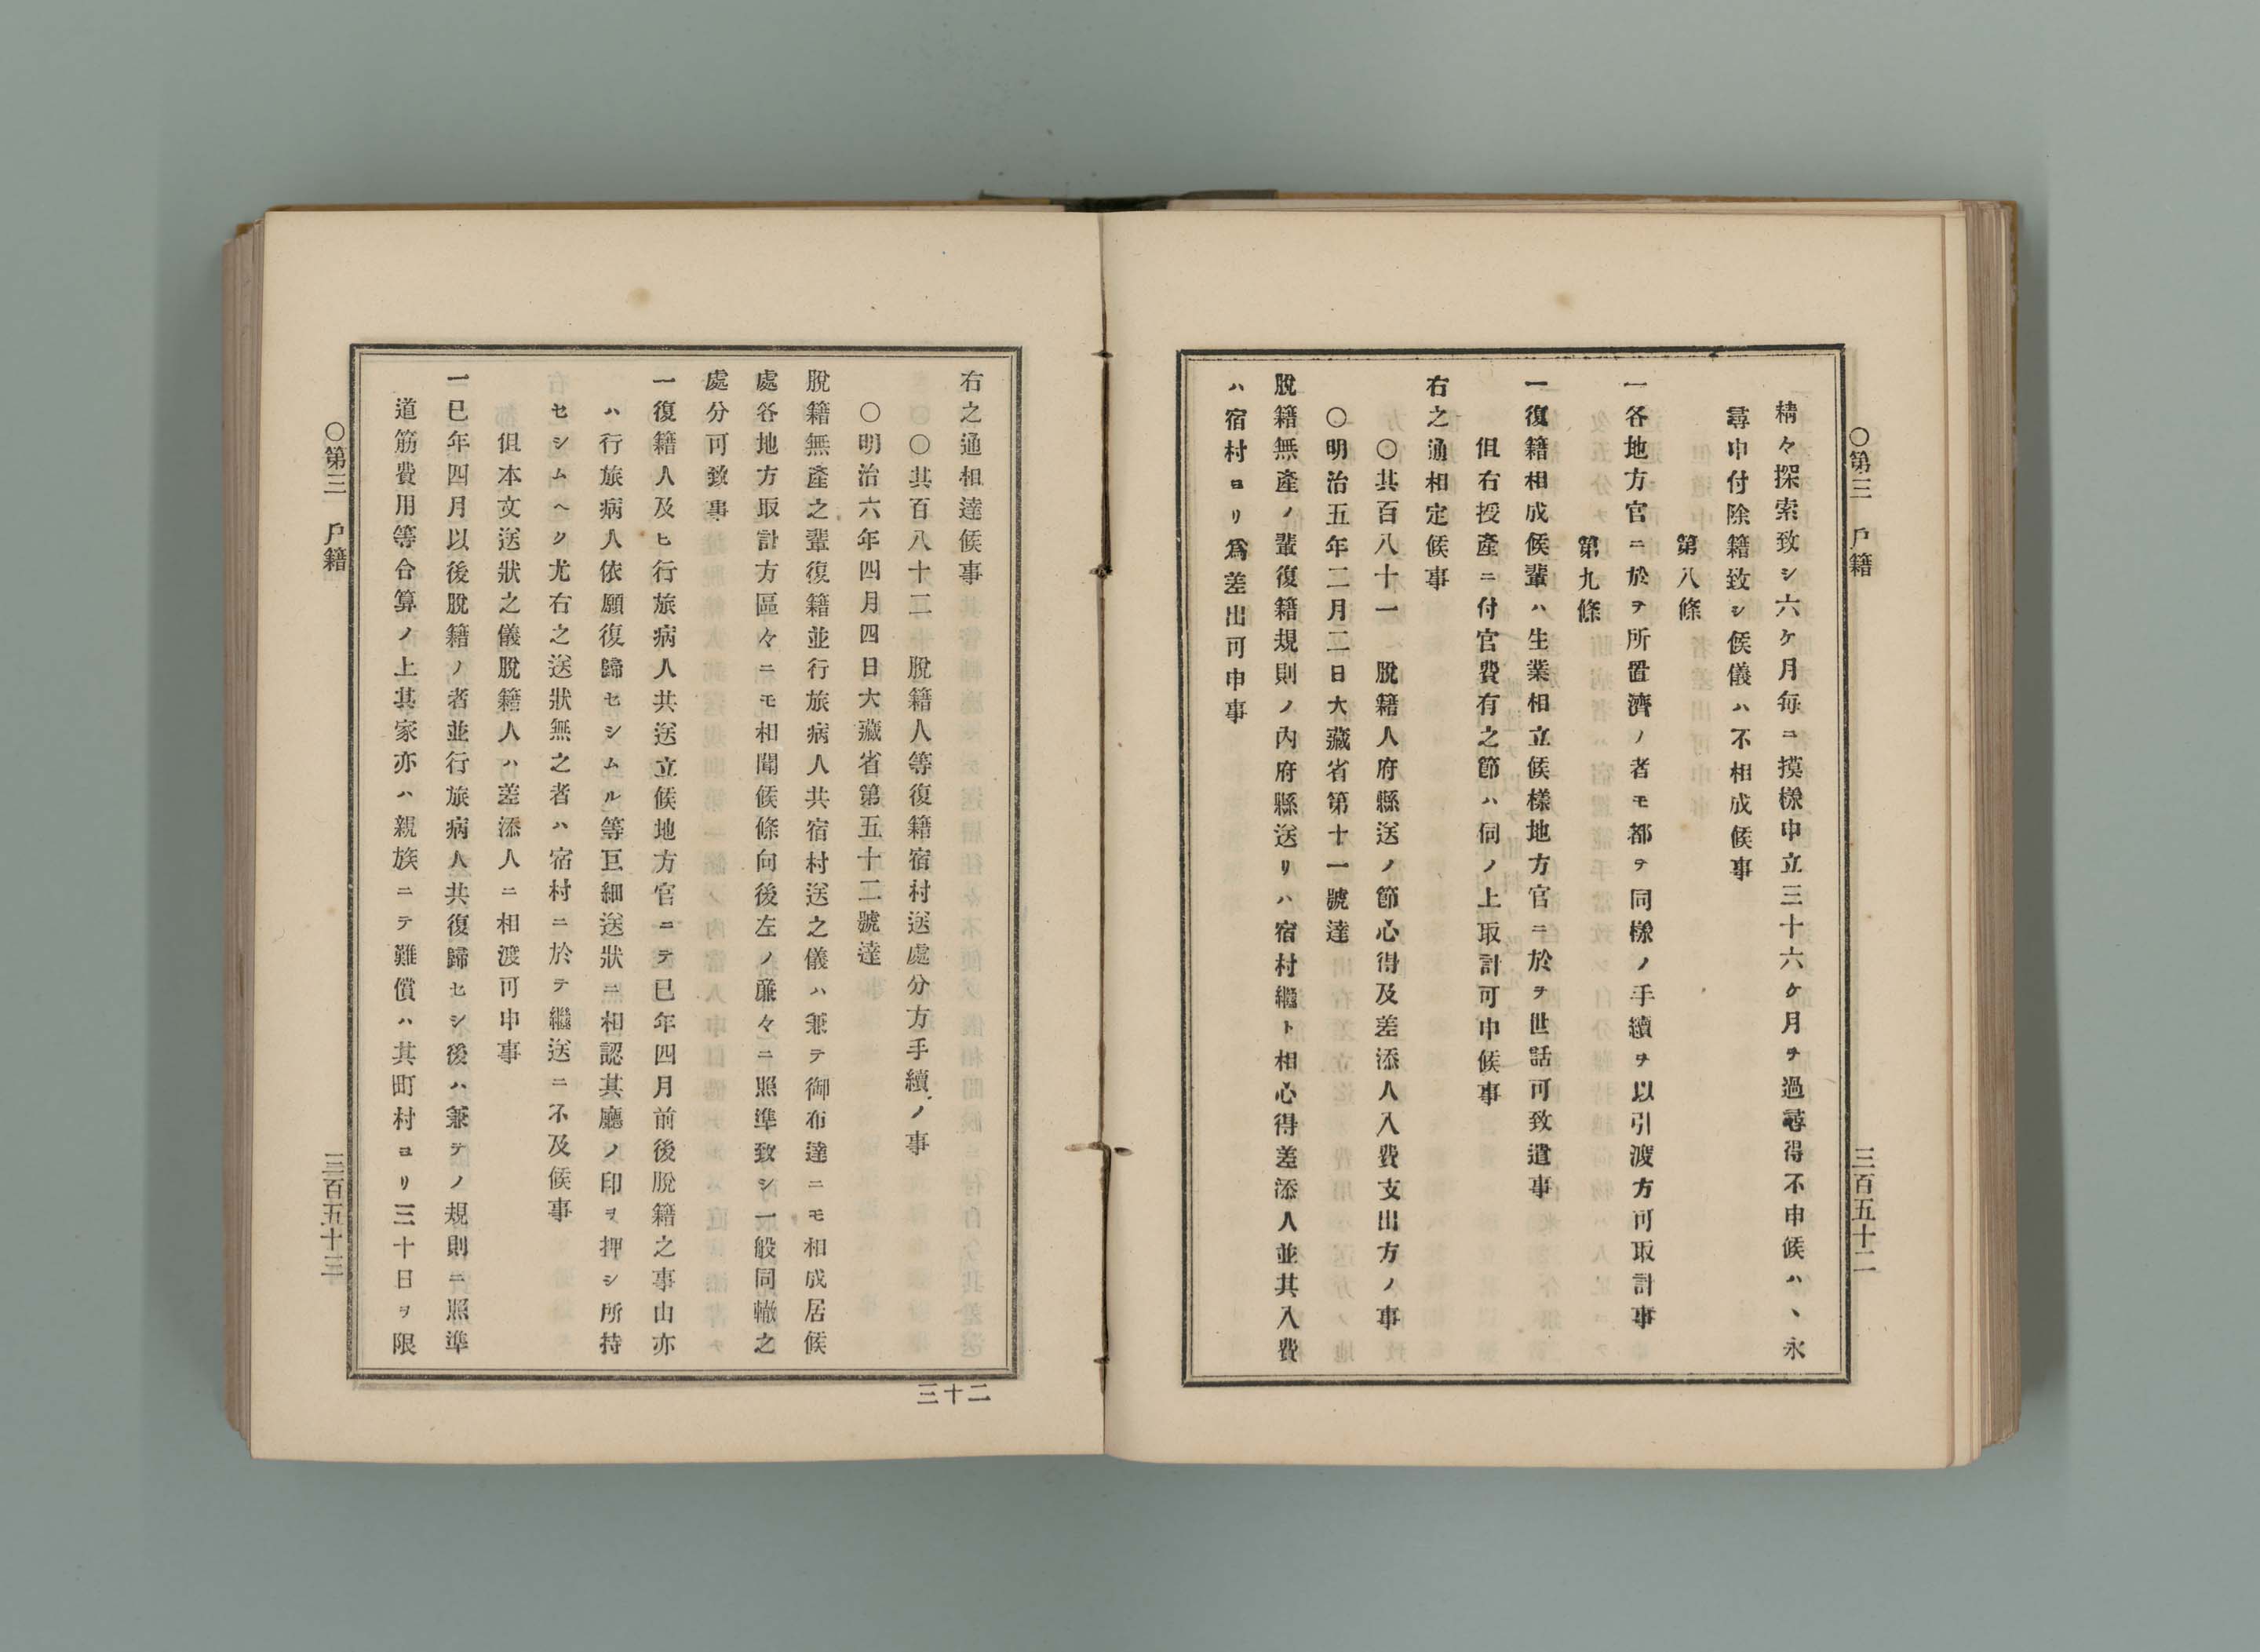 〇第三　戶籍　三百五十二
精々探索致シ六ケ月每ニ摸樣申立三十六ケ月ヲ過尋得不申候ハヽ永
尋申付除籍致シ候儀ハ不相成候事
第八條
一各地方官ニ於ヲ所置濟ノ者モ都テ同樣ノ手續ヲ以引渡方可取計事
第九條
一復籍相成候輩ハ生業相立候樣地方官ニ於ヲ世話可致遣事
但右授產ニ付官費有之節ハ伺ノ上取計可申候事
右之通相定候事
〇其百八十一　脫籍人府縣送ノ節心得及差添人入費支出方ノ事
〇明治五年二月二日大藏省第十一號達
脫籍無產ノ輩復籍規則ノ內府縣送リハ宿村繼ト相心得差添人並其入費
ハ宿村ヨリ爲差出可申事
右之通相達候事
〇其百八十二　脫籍人等復籍宿村送處分方手續ノ事
〇明治六年四月四日大藏省第五十二號達
脫籍無產之輩復籍並行旅病人共宿村送之儀ハ兼テ御布達ニモ相成居候
處各地方取計方區々ニモ相聞候條向後左ノ廉々ニ照準致シ一般同轍之
處分可致事
一復籍人及ヒ行旅病人共送立候地方官ニテ已年四月前後脫籍之事由亦
ハ行旅病人依願復歸セシムル等巨細送狀ニ相認其廳ノ印ヲ押シ所持
セシムヘク尤右之送狀無之者ハ宿村ニ於テ繼送ニ不及候事
但本文送狀之儀脫籍人ハ差添人ニ相渡可申事
一已年四月以後脫籍ノ者並行旅病人共復歸セシ後ハ兼テノ規則ニ照準
道筋費用等合算ノ上其家亦ハ親族ニテ難償ハ其町村ヨリ三十日ヲ限
〇第三　戶籍　三百五十三
二十三